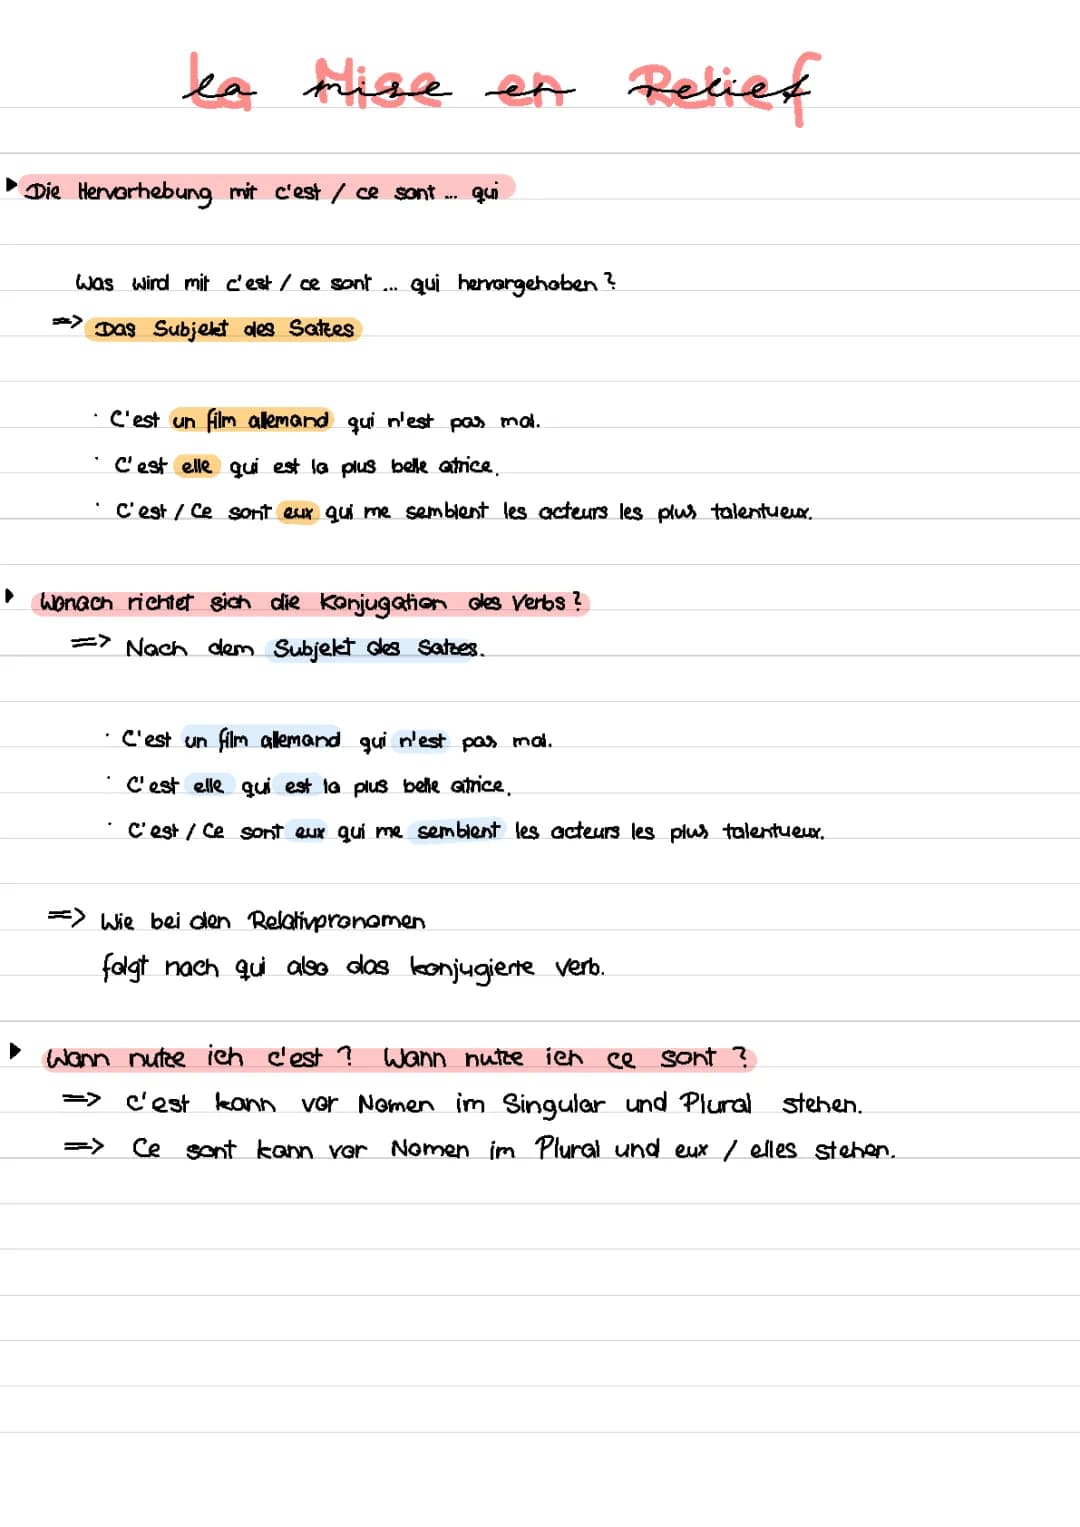 la mise en Relief
Die Hervorhebung mit c'est / ce sont ... qui
Was wird mit c'est / ce sont ... qui hervorgehoben?
=> Das Subjekt des Satzes
· C'est un film allemand qui n'est pas mal.
· C'est elle qui est la plus belle atrice.
· C'est / Ce sont eux qui me semblent les acteurs les plus talentueux.
Wonach richtet sich die Konjugation des Verbs?
=> Nach dem Subjekt des Satzes.
· C'est un film allemand qui n'est pas mal.
· C'est elle qui est la plus belle atrice.
· C'est / Ce sont eux qui me semblent les acteurs les plus talentueux.
=> Wie bei den Relativpronomen
folgt nach qui also das konjugierte Verb.
Wann nutze ich c'est? Wann nutze ich ce sont?
=> C'est kann vor Nomen im Singular und Plural stehen.
=> Ce sont kann vor Nomen im Plural und eux / elles stehen.